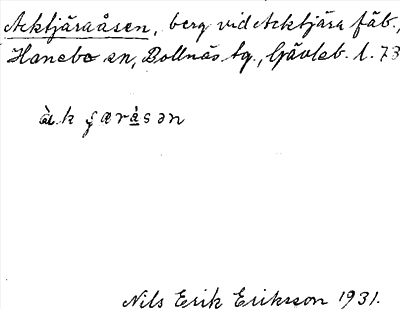 Acktjäraåsen, berg vid Acktjära fäb.,
Hanebo sn, Bollnäs tg., Gävleb. l. 73
Nils Erik Eriksson 1931.